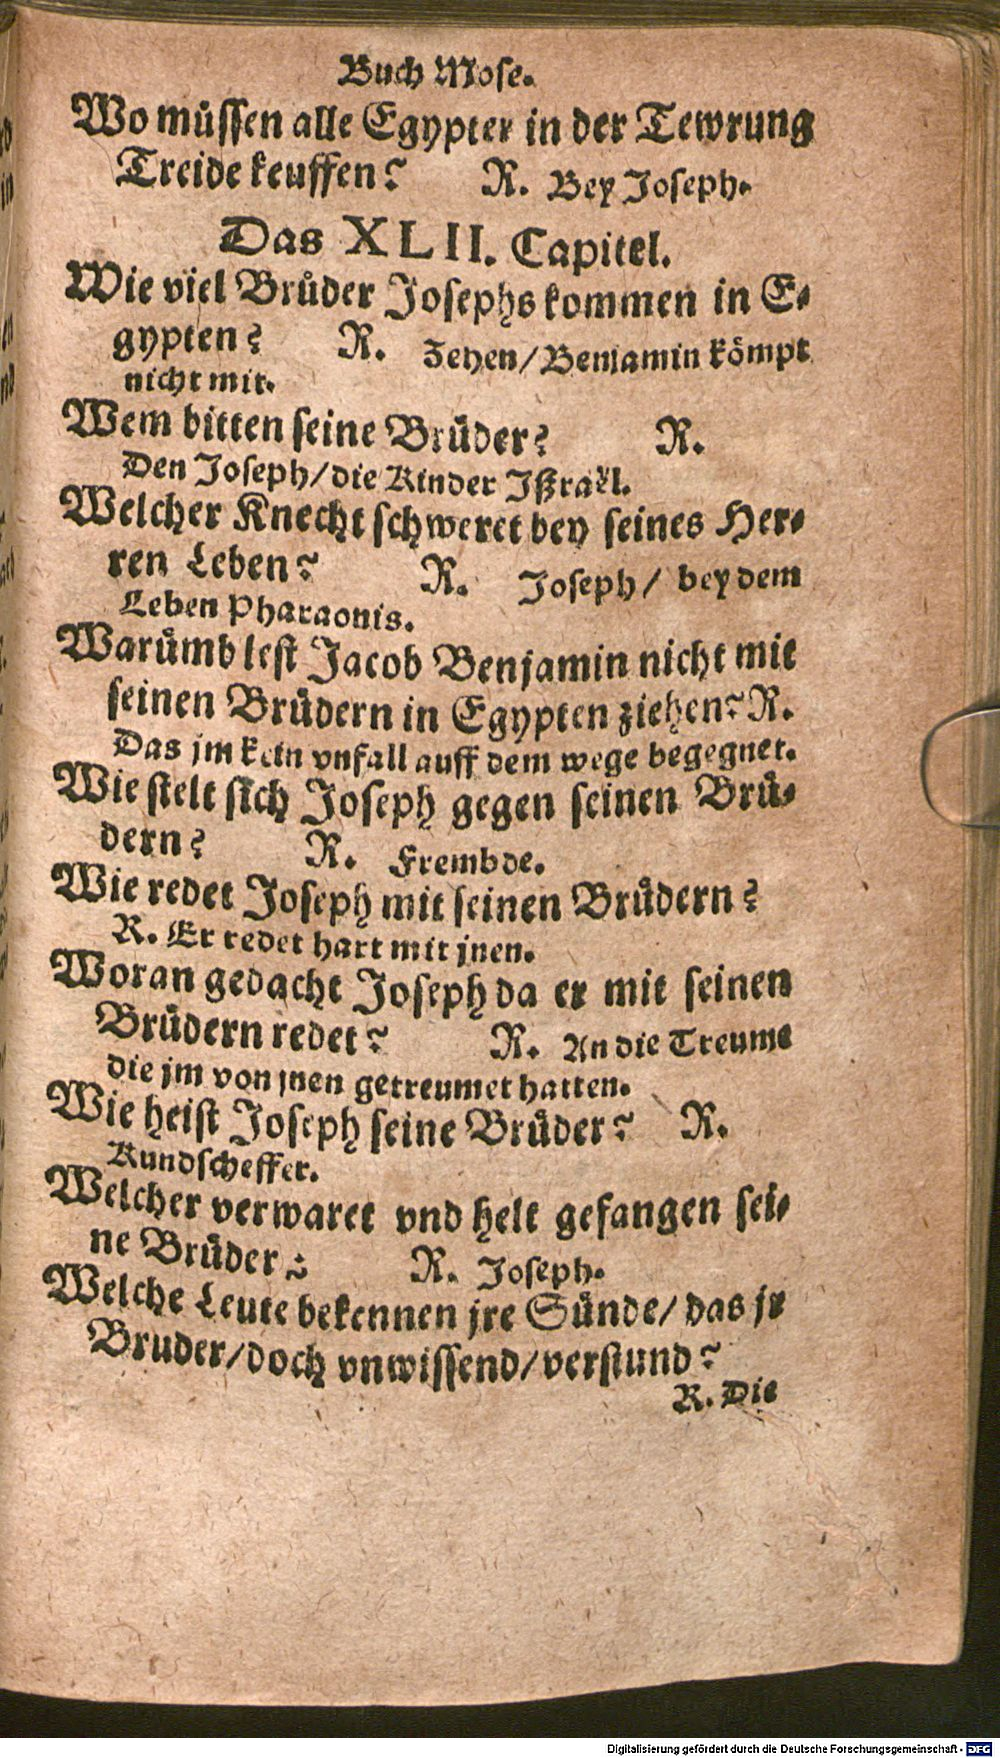 Buch Mose.
Wo müssen alle Egypter in der Tewrung
Treide keuffen? R. Bey Joseph.
Das XLII. Capitel.
Wie viel Brüder Josephs kommen in E-
gypten? R. Zehen/Benjamin kömpt
nicht mit.
Wem bitten seine Brüder? R.
Den Joseph/die Kinder Jßraël.
Welcher Knecht schweret bey seines Her-
ren Leben? R. Joseph/ bey dem
Leben Pharaonis.
Warümb lest Jacob Benjamin nicht mit
seinen Brüdern in Egypten ziehen? R.
Das jm kein vnfall auff dem wege begegnet.
Wie stelt sich Joseph gegen seinen Brü-
dern? R. Frembde.
Wie redet Joseph mit seinen Brüdern?
R. Er redet hart mit jnen.
Woran gedacht Joseph da er mit seinen
Brüdern redet? R. An die Treume
die jm von jnen getreumet hatten.
Wie heist Joseph seine Brüder? R.
Kundscheffer.
Welcher verwaret vnd helt gefangen sei-
ne Brüder? R. Joseph.
Welche Leute bekennen jre Sünde/ das jr
Bruder/doch vnwissend/verstund?
R. Die
Digitalisierung gefördert durch die Deutsche Forschungsgemeinschaft - DFG